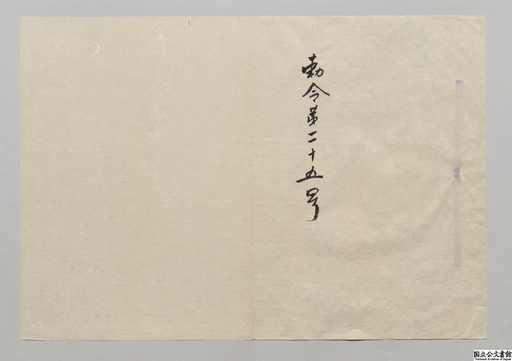 勅令第二十五号
国立公文書館
National Archives of Japan